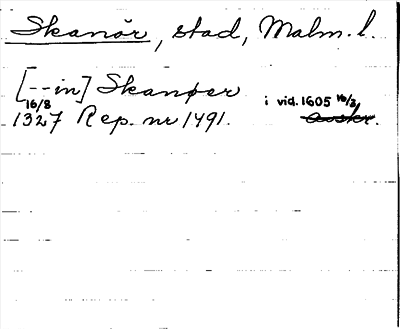 Skanör, stad, Malm. l.
[--in] Skanøer
16/8 i vid. 1605 16/3
1327 Rep. nr 1491. avskr.